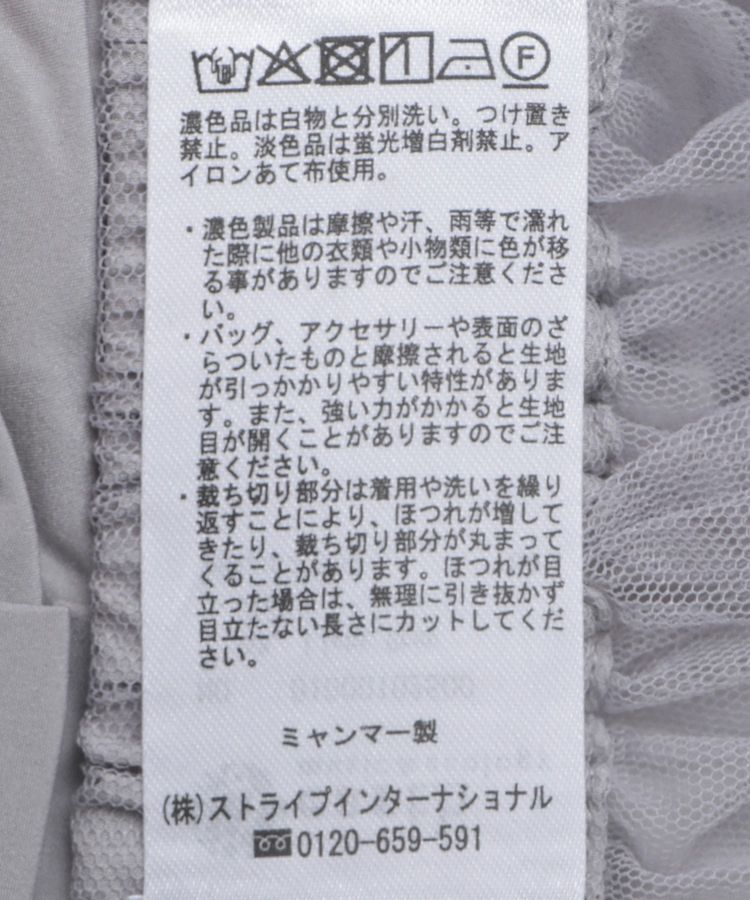 F
濃色品は白物と分別洗い。つけ置き
禁止。淡色品は蛍光増白剤禁止。ア
イロンあて布使用。
・濃色製品は摩擦や汗、雨等で濡れ
た際に他の衣類や小物類に色が移
る事がありますのでご注意くださ
い。
・バッグ、アクセサリーや表面のざ
らついたものと摩擦されると生地
が引っかかりやすい特性がありま
す。また、強い力がかかると生地
目が開くことがありますのでご注
意ください。
・裁ち切り部分は着用や洗いを繰り
返すことにより、ほつれが増して
きたり、裁ち切り部分が丸まって
くることがあります。ほつれが目
立った場合は、無理に引き抜かず
目立たない長さにカットしてくだ
さい。
ミャンマー製
(株)ストライプインターナショナル
0120-659-591